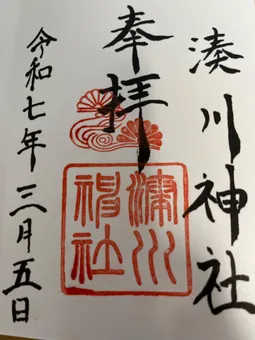 湊川神社
奉拝
湊川神社
令和七年三月五日